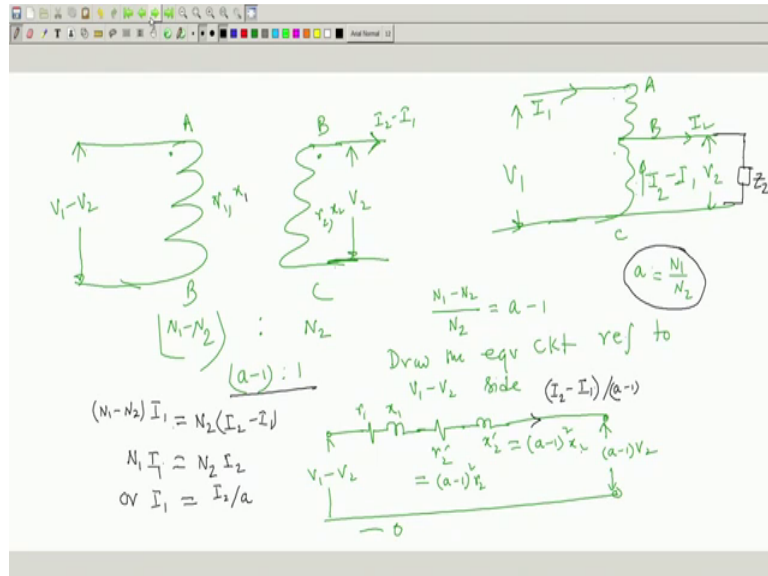 Arial Normal 12
A
B
I₂-I₁
V₁-V₂
r₁, x₁
r₂, x₂
V₂
B
C
(N₁-N₂) : N₂
(a-1) : 1
I₁
A
V₁
B
I₂
I₂-I₁
V₂
Z₂
C
a = N₁/N₂
(N₁-N₂)/N₂ = a-1
Draw the equv ckt ref to
V₁-V₂ side
(I₂-I₁)/(a-1)
(N₁-N₂)I₁ = N₂(I₂-I₁)
N₁I₁ = N₂I₂
or I₁ = I₂/a
r₁ x₁
r₂′ x₂′ = (a-1)²x₂
= (a-1)²r₂
V₁-V₂
(a-1)V₂
— 0